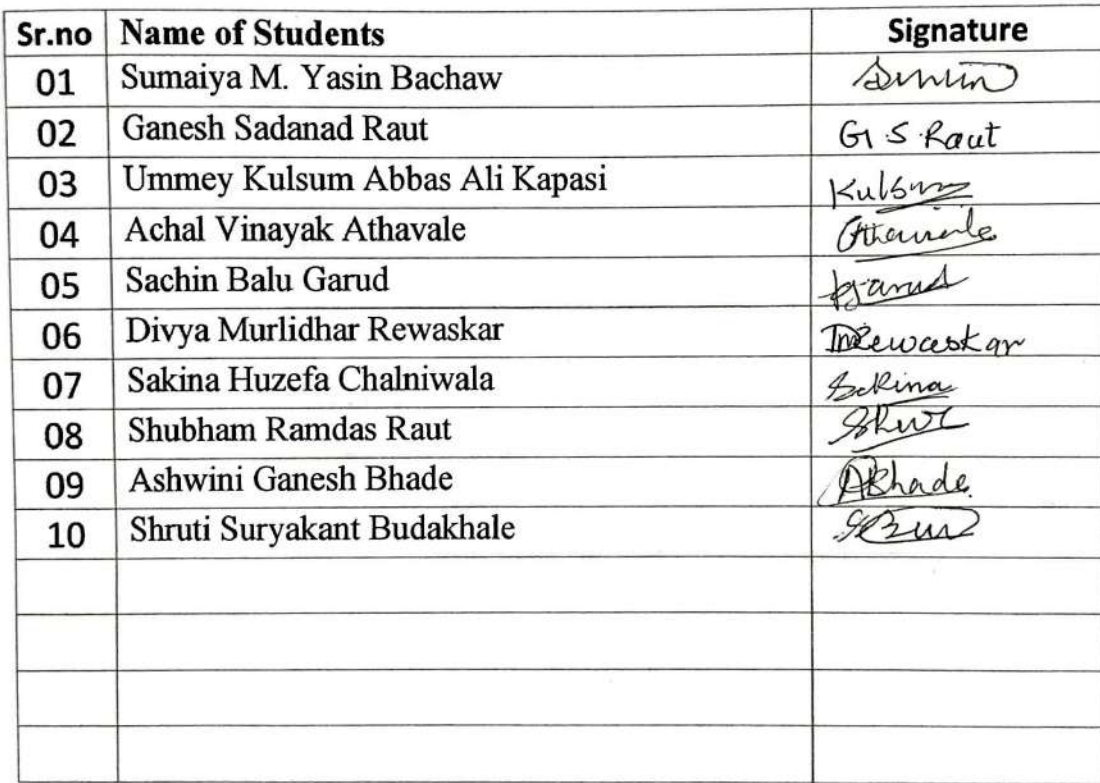 Sr.no Name of Students Signature
01 Sumaiya M. Yasin Bachaw
02 Ganesh Sadanad Raut G S Raut
03 Ummey Kulsum Abbas Ali Kapasi Kulsum
04 Achal Vinayak Athavale Athavale
05 Sachin Balu Garud Garud
06 Divya Murlidhar Rewaskar DMRewaskar
07 Sakina Huzefa Chalniwala Sakina
08 Shubham Ramdas Raut
09 Ashwini Ganesh Bhade ABhade
10 Shruti Suryakant Budakhale